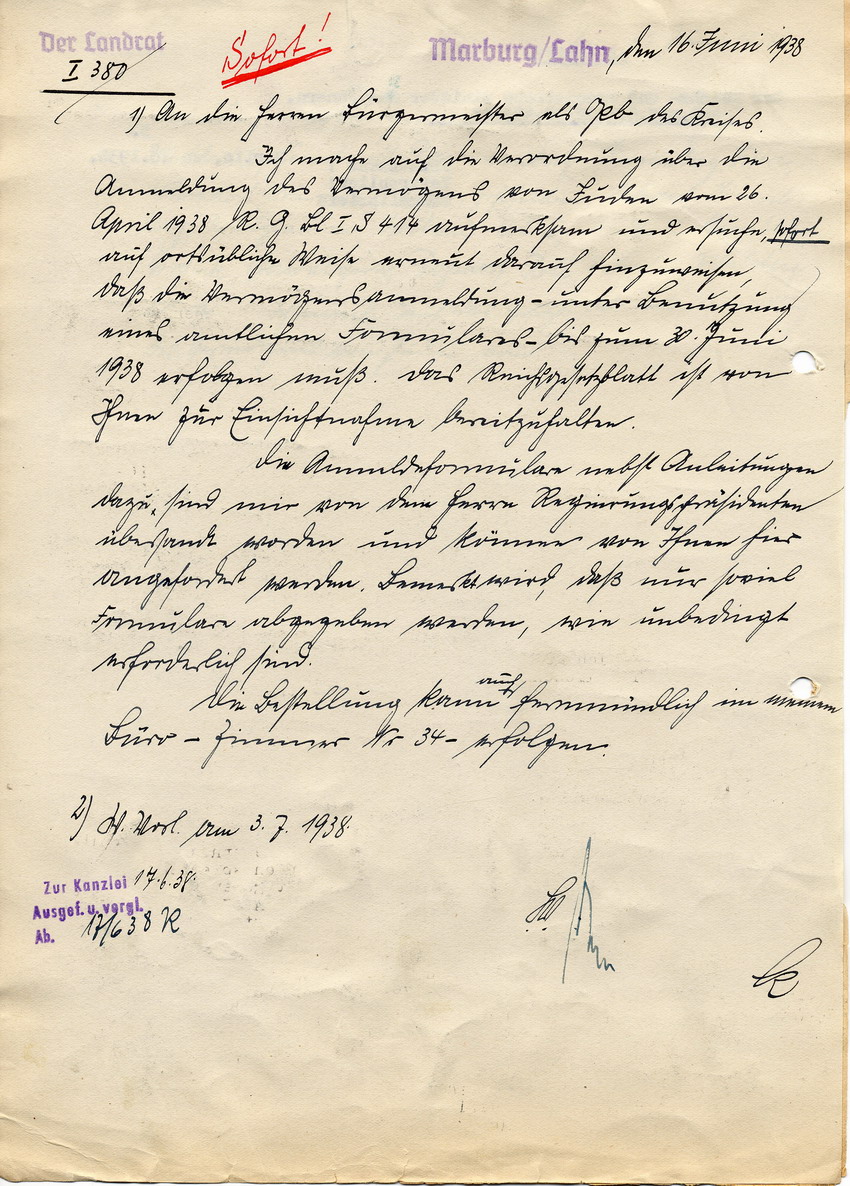 Der Landrat
I 380
Sofort!
Marburg/Lahn, den 16. Juni 1938
1) An die Herren Bürgermeister als Opb des Kreises.
Ich mache auf die Verordnung über die
Anmeldung des Vermögens von Juden vom 26.
April 1938 /R. G. Bl I, S 414 aufmerksam und ersuche, sofort
auf ortsübliche Weise erneut darauf hinzuweisen,
daß die Vermögensanmeldung – unter Benutzung
eines amtlichen Formulares – bis zum 30. Juni
1938 erfolgen muß. Das Reichsgesetzblatt ist von
Ihnen zur Einsichtnahme bereitzuhalten.
Die Anmeldeformulare nebst Anleitungen
dazu, sind mir von dem Herrn Regierungspräsidenten
übersandt worden und können von Ihnen hier
angefordert werden. Bemerkt wird, daß nur soviel
Formulare abgegeben werden, wie unbedingt
erforderlich sind.
Die Bestellung kann auch fernmündlich im meinem
Büro – Zimmer Nr 34 – erfolgen.
2) W. Vorl. am 3. 7. 1938.
Zur Kanzlei 17.6.38.
Ausgef. u. vergl.
Ab. 17/6 38 K